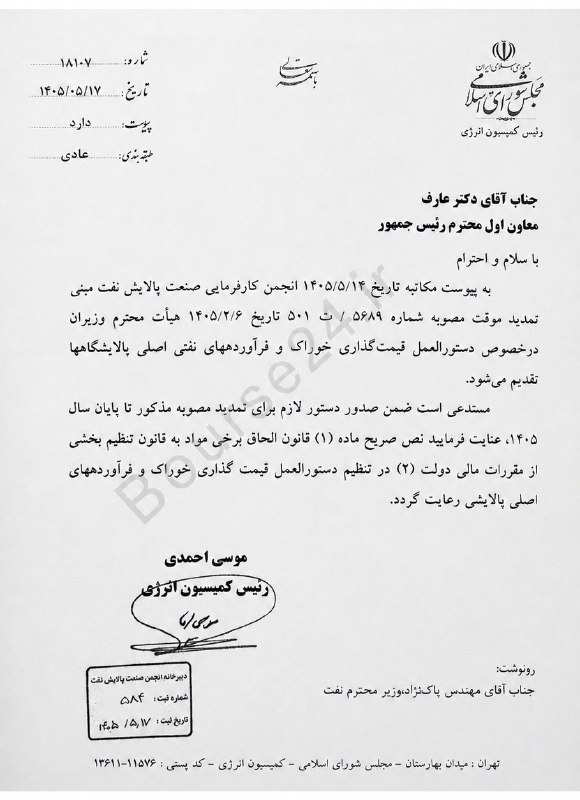 باسمه تعالی
جمهوری اسلامی ایران
مجلس شورای اسلامی
رئیس کمیسیون انرژی
شماره: ۱۸۱۰۷
تاریخ: ۱۴۰۵/۰۵/۱۷
پیوست: دارد
طبقه بندی: عادی
جناب آقای دکتر عارف
معاون اول محترم رئیس جمهور
با سلام و احترام
به پیوست مکاتبه تاریخ ۱۴۰۵/۵/۱۴ انجمن کارفرمایی صنعت پالایش نفت مبنی
تمدید موقت مصوبه شماره ۵۶۸۹ / ت ۵۰۱ تاریخ ۱۴۰۵/۲/۶ هیأت محترم وزیران
درخصوص دستورالعمل قیمت‌گذاری خوراک و فرآوردههای نفتی اصلی پالایشگاهها
تقدیم می‌شود.
مستدعی است ضمن صدور دستور لازم برای تمدید مصوبه مذکور تا پایان سال
۱۴۰۵، عنایت فرمایید نص صریح ماده (۱) قانون الحاق برخی مواد به قانون تنظیم بخشی
از مقررات مالی دولت (۲) در تنظیم دستورالعمل قیمت گذاری خوراک و فرآوردههای
اصلی پالایشی رعایت گردد.
موسی احمدی
رئیس کمیسیون انرژی
دبیرخانه انجمن صنعت پالایش نفت
شماره ثبت: ۵۸۴
تاریخ ثبت: ۱۴۰۵/۵/۱۷
رونوشت:
جناب آقای مهندس پاک‌نژاد،وزیر محترم نفت
تهران : میدان بهارستان - مجلس شورای اسلامی - کمیسیون انرژی - کد پستی : ۱۱۵۷۶-۱۳۶۱۱
Bourse24.ir